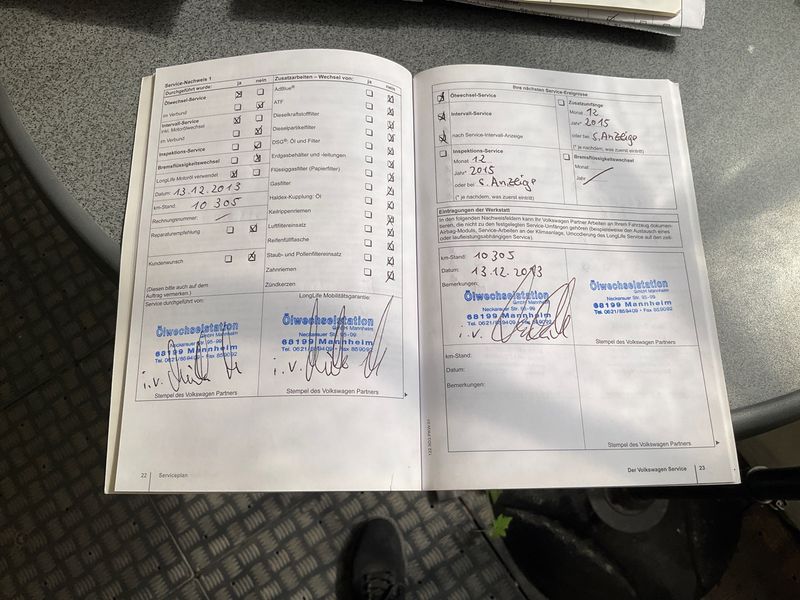 Service-Nachweis 1
Durchgeführt wurde: ja nein
Ölwechsel-Service
im Verbund
Intervall-Service
inkl. Motorölwechsel
im Verbund
Inspektions-Service
Bremsflüssigkeitswechsel
LongLife Motoröl verwendet
Datum: 13.12.2013
km-Stand: 10 305
Rechnungsnummer:
Reparaturempfehlung
Kundenwunsch
(Diesen bitte auch auf dem
Auftrag vermerken.)
Service durchgeführt von:
Ölwechselstation
GmbH Mannheim
Neckarauer Str. 95-99
68199 Mannheim
Tel. 0621/859409 • Fax 859092
i.V.
Stempel des Volkswagen Partners
Zusatzarbeiten – Wechsel von: ja nein
AdBlue®
ATF
Dieselkraftstofffilter
Dieselpartikelfilter
DSG®: Öl und Filter
Erdgasbehälter und -leitungen
Flüssiggasfilter (Papierfilter)
Gasfilter
Haldex-Kupplung: Öl
Keilrippenriemen
Luftfiltereinsatz
Reifenfüllflasche
Staub- und Pollenfiltereinsatz
Zahnriemen
Zündkerzen
LongLife Mobilitätsgarantie:
Ölwechselstation
GmbH Mannheim
Neckarauer Str. 95-99
68199 Mannheim
Tel. 0621/859409 • Fax 859092
i.V.
Stempel des Volkswagen Partners
22 Serviceplan
Ihre nächsten Service-Ereignisse
Ölwechsel-Service
Intervall-Service
nach Service-Intervall-Anzeige
Inspektions-Service
Monat 12
Jahr 2015
oder bei s. Anzeige
(* je nachdem, was zuerst eintritt)
Zusatzumfänge
Monat 12
Jahr 2015
oder bei s. Anzeige
(* je nachdem, was zuerst eintritt)
Bremsflüssigkeitswechsel
Monat
Jahr
Eintragungen der Werkstatt
In den folgenden Nachweisfeldern kann Ihr Volkswagen Partner Arbeiten an Ihrem Fahrzeug dokumen-
tieren, die nicht zu den festgelegten Service-Umfängen gehören (beispielsweise den Austausch eines
Airbag-Moduls, Service-Arbeiten an der Klimaanlage, Umcodierung des LongLife Service auf den zeit-
oder laufleistungsabhängigen Service).
km-Stand: 10 305
Datum: 13.12.2013
Bemerkungen:
Ölwechselstation
GmbH Mannheim
Neckarauer Str. 95-99
68199 Mannheim
Tel. 0621/859409
i.V.
Ölwechselstation
GmbH Mannheim
Neckarauer Str. 95-99
68199 Mannheim
Tel. 0621/859409 • Fax 859092
Stempel des Volkswagen Partners
km-Stand:
Datum:
Bemerkungen:
Stempel des Volkswagen Partners
Der Volkswagen Service 23